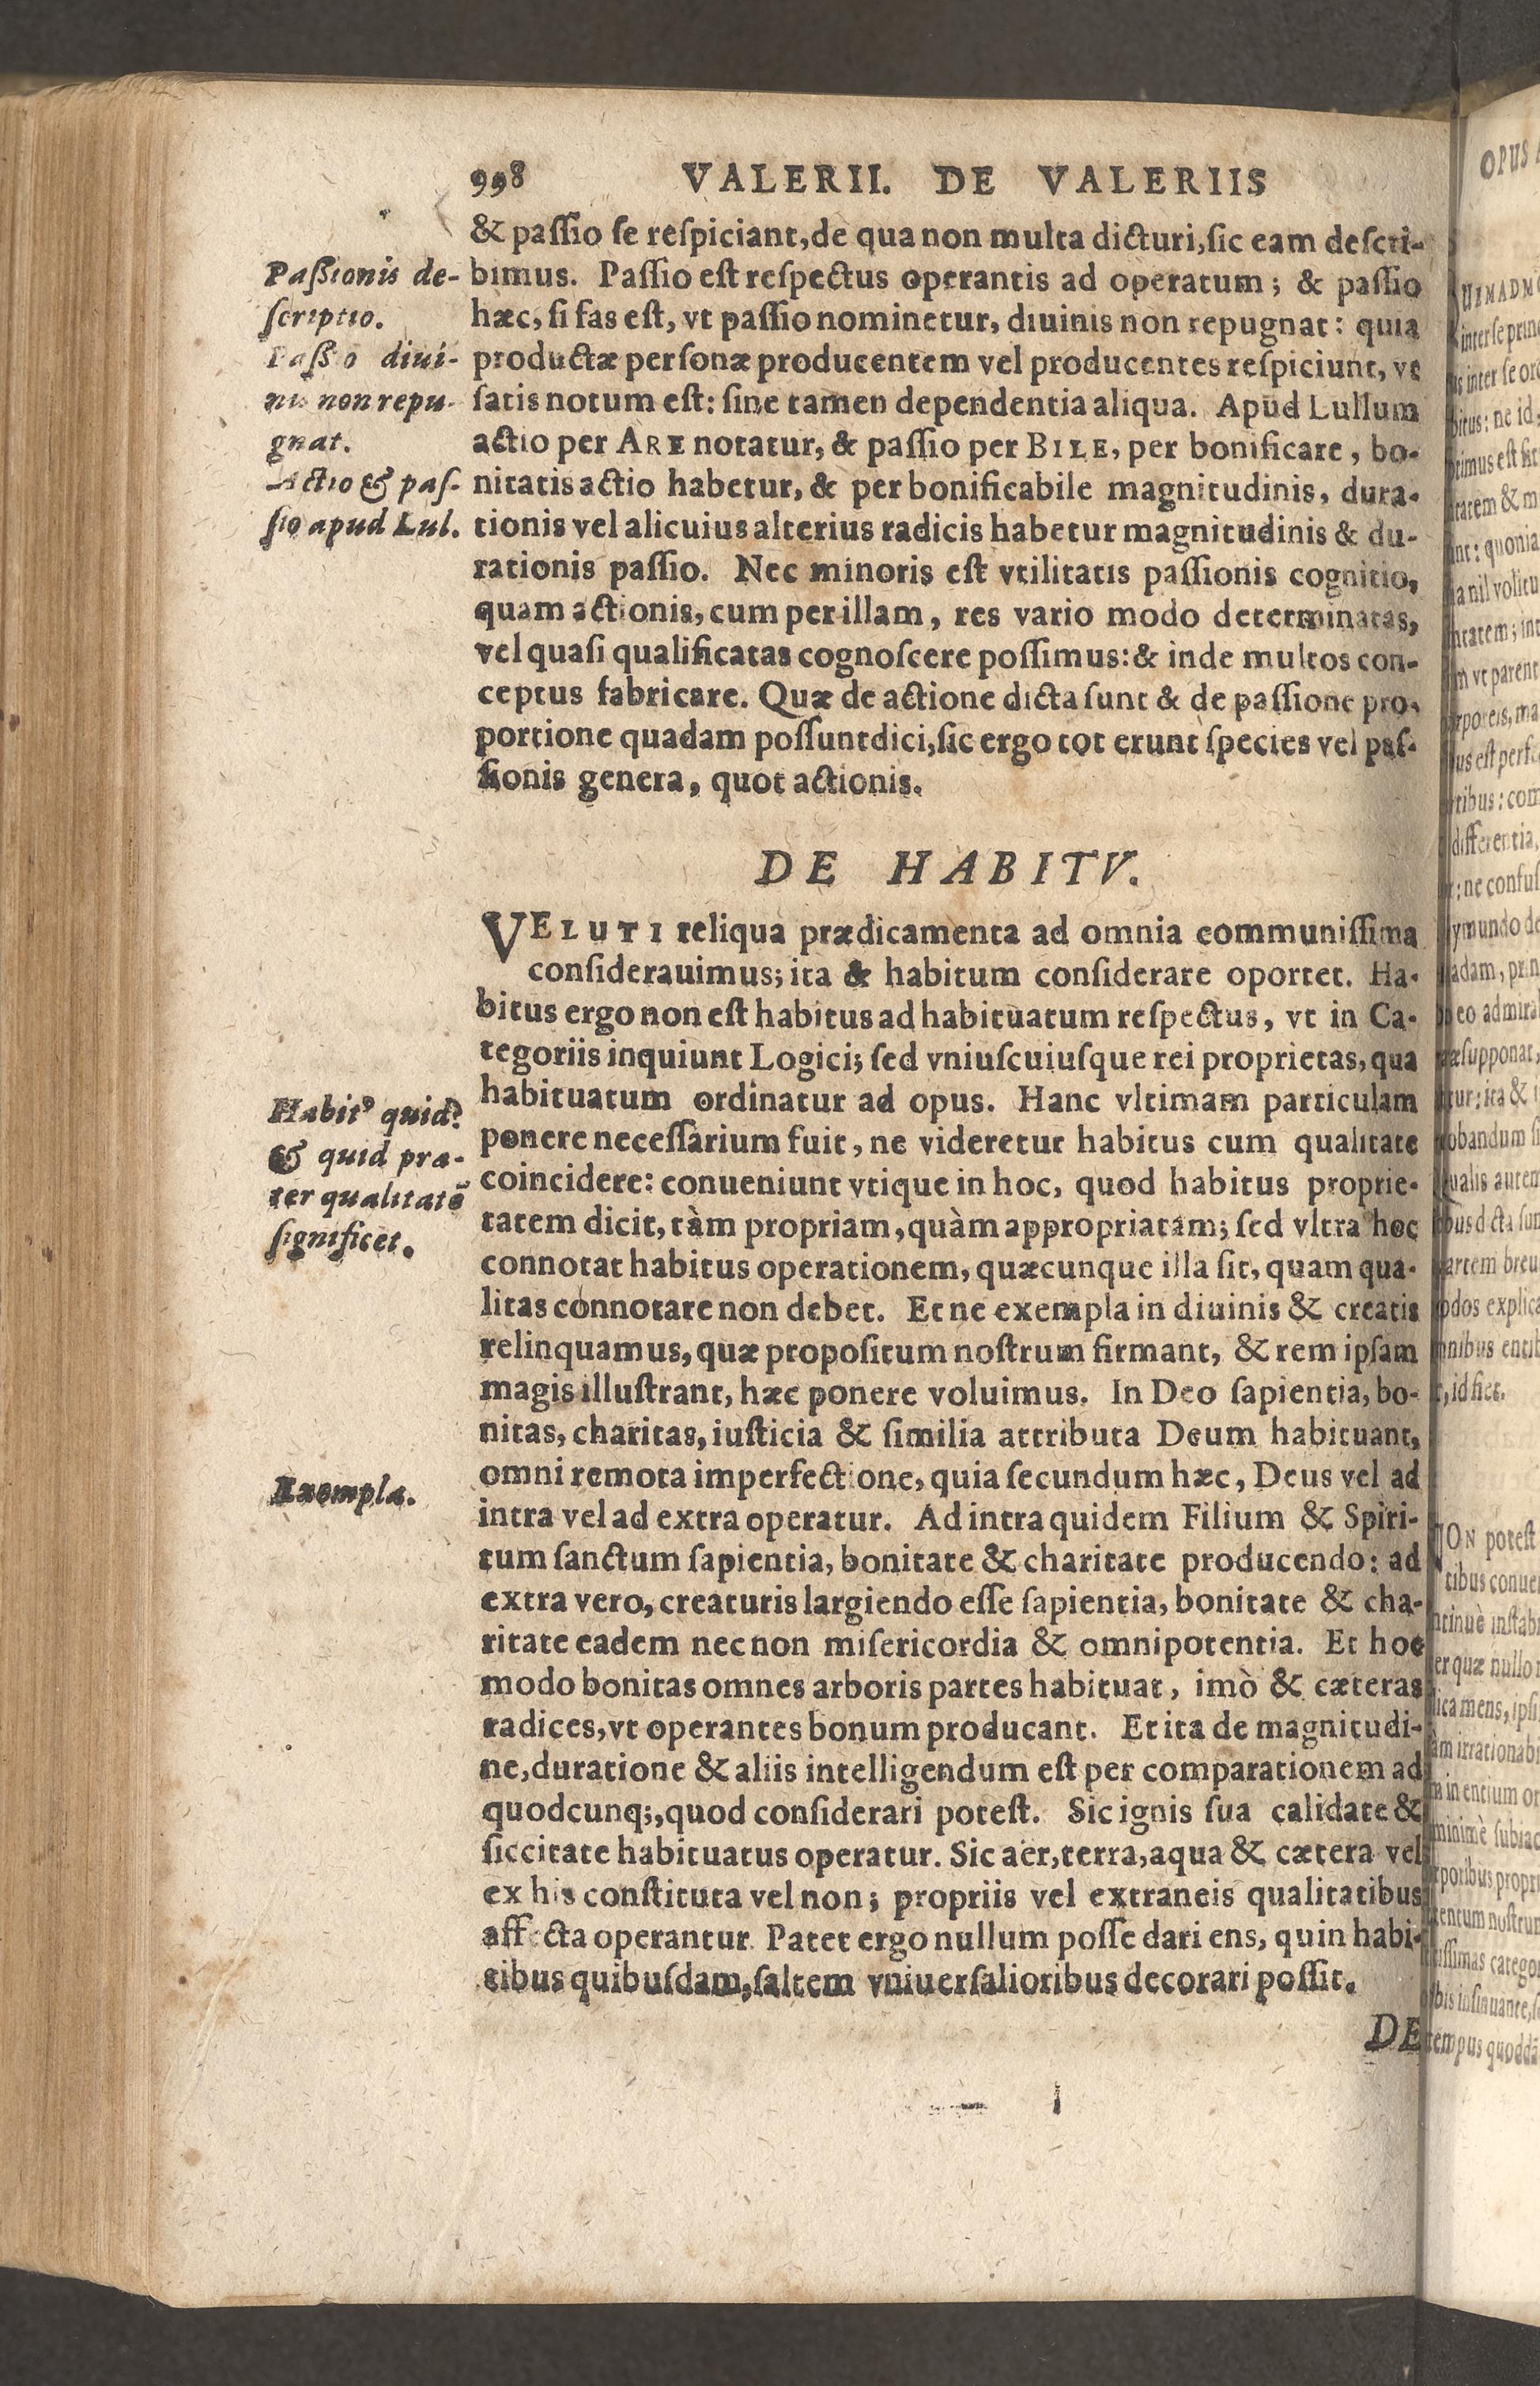 998 VALERII. DE VALERIIS
& paſſio ſe reſpiciant, de qua non multa dicturi, ſic eam deſcri-
bimus. Paſſio eſt reſpectus operantis ad operatum; & paſſio
hæc, ſi fas eſt, vt paſſio nominetur, diuinis non repugnat: quia
productæ perſonæ producentem vel producentes reſpiciunt, vt
ſatis notum eſt: ſine tamen dependentia aliqua. Apud Lullum
actio per ARE notatur, & paſſio per BILE, per bonificare, bo-
nitatis actio habetur, & per bonificabile magnitudinis, dura-
tionis vel alicuius alterius radicis habetur magnitudinis & du-
rationis paſſio. Nec minoris eſt vtilitatis paſſionis cognitio,
quam actionis, cum per illam, res vario modo determinatas,
vel quaſi qualificatas cognoſcere poſſimus: & inde multos con-
ceptus fabricare. Quæ de actione dicta ſunt & de paſſione pro-
portione quadam poſſunt dici, ſic ergo tot erunt ſpecies vel paſ-
ſionis genera, quot actionis.
Paßionis de-
ſcriptio.
Paßio diui-
nis non repu-
gnat.
Actio & paſ-
ſio apud Lul.
DE HABITV.
VELUTI reliqua prædicamenta ad omnia communiſſima
conſiderauimus; ita & habitum conſiderare oportet. Ha-
bitus ergo non eſt habitus ad habituatum reſpectus, vt in Ca-
tegoriis inquiunt Logici; ſed vniuſcuiuſque rei proprietas, qua
habituatum ordinatur ad opus. Hanc vltimam particulam
ponere neceſſarium fuit, ne videretur habitus cum qualitate
coincidere: conueniunt vtique in hoc, quod habitus proprie-
tatem dicit, tàm propriam, quàm appropriatam; ſed vltra hoc
connotat habitus operationem, quæcunque illa ſit, quam qua-
litas connotare non debet. Et ne exempla in diuinis & creatis
relinquamus, quæ propoſitum noſtrum firmant, & rem ipſam
magis illuſtrant, hæc ponere voluimus. In Deo ſapientia, bo-
nitas, charitas, iuſticia & ſimilia attributa Deum habituant,
omni remota imperfectione, quia ſecundum hæc, Deus vel ad
intra vel ad extra operatur. Ad intra quidem Filium & Spiri-
tum ſanctum ſapientia, bonitate & charitate producendo: ad
extra vero, creaturis largiendo eſſe ſapientia, bonitate & cha-
ritate eadem nec non miſericordia & omnipotentia. Et hoc
modo bonitas omnes arboris partes habituat, imò & cæteras
radices, vt operantes bonum producant. Et ita de magnitudi-
ne, duratione & aliis intelligendum eſt per comparationem ad
quodcunq;, quod conſiderari poteſt. Sic ignis ſua calidate &
ſiccitate habituatus operatur. Sic aër, terra, aqua & cætera vel
ex his conſtituta vel non; propriis vel extraneis qualitatibus
affecta operantur. Patet ergo nullum poſſe dari ens, quin habi-
tibus quibuſdam, ſaltem vniuerſalioribus decorari poſſit.
Habit⁹ quid?
& quid præ-
ter qualitatẽ
ſignificet.
Exempla.
DE